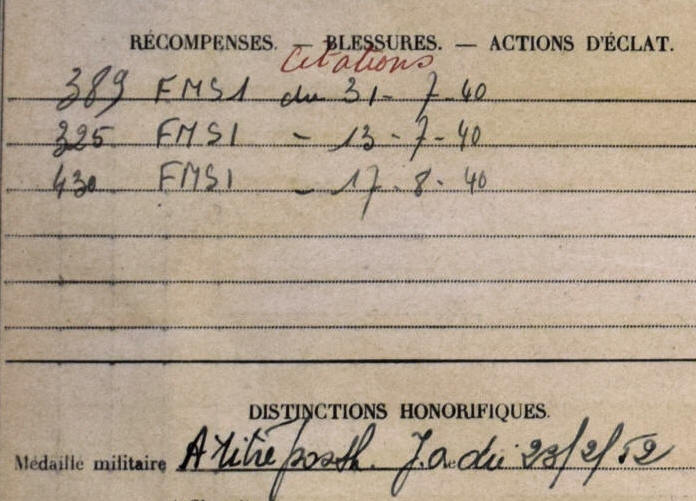 RÉCOMPENSES. — BLESSURES. — ACTIONS D'ÉCLAT.
Citations
389 FMS1 du 31-7-40
325 FMS1 - 13-7-40
430 FMS1 - 17-8-40
DISTINCTIONS HONORIFIQUES.
Médaille militaire A titre posth. J.O. du 23/2/52